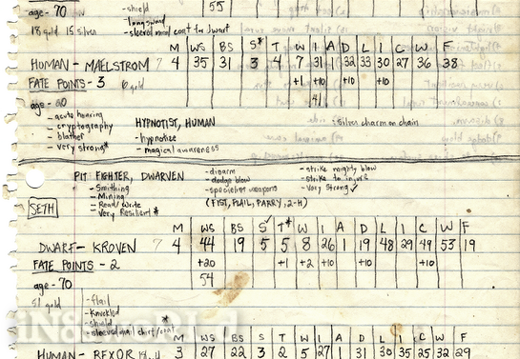 age - 70
- shield
55
- longsword
18 gold 15 silver
- sleeved mail coat for dwarf
M WS BS S* T W I A D L I C W F
HUMAN - MAELSTROM 7 4 35 31 3 4 7 31 1 32 33 30 27 36 38
FATE POINTS - 3 6 gold +1 +10 +10 +10
41
age - 20
- acute hearing
- cryptography
- blather
- very strong*
HYPNOTIST, HUMAN
- hypnotize
- magical awareness
- silver charm on chain
PIT FIGHTER, DWARVEN
- Smithing
- Mining
- Read/Write
- Very Resilient *
- disarm
- dodge blow
- specialist weapons
(FIST, FLAIL, PARRY, 2-H)
- strike mighty blow
- strike to injure
- Very Strong ✓
SETH
M WS BS S✓ T* W I A D L I C W F
DWARF - KROVEN 7 4 44 19 5 5 8 26 1 19 48 29 49 53 19
FATE POINTS - 2 +20 +1 +2 +10 +10 +10
54
age - 70
51 gold
- flail
- knuckled
- shield
- sleeved mail shirt/coat
M WS BS S T W I A D L I C W F
HUMAN - REXOR 3 27 22 3 2 5 27 1 31 30 35 32 29